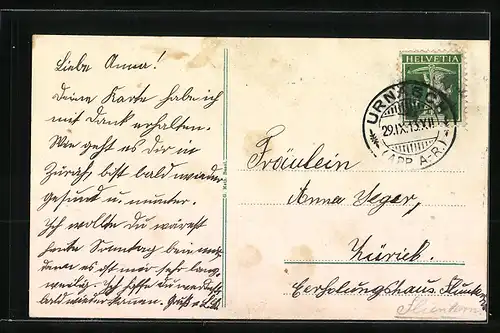 Liebe Anna!
Deine Karte habe ich
mit Dank erhalten.
Wie geht es dir in
Zürich, bist bald wieder
gesund u. munter.
Ich wollte du wärest
heute Sonntag bei mir,
denn es ist mir sehr lang-
weilig. Ich hoffe du werdest
bald wieder kommen. Gruß
HELVETIA
URNÄSCH
29.IX.13.XII
(APP. A-R.)
Fräulein
Anna Jeger,
Zürich.
Erholungshaus Fluntern
Fluntern